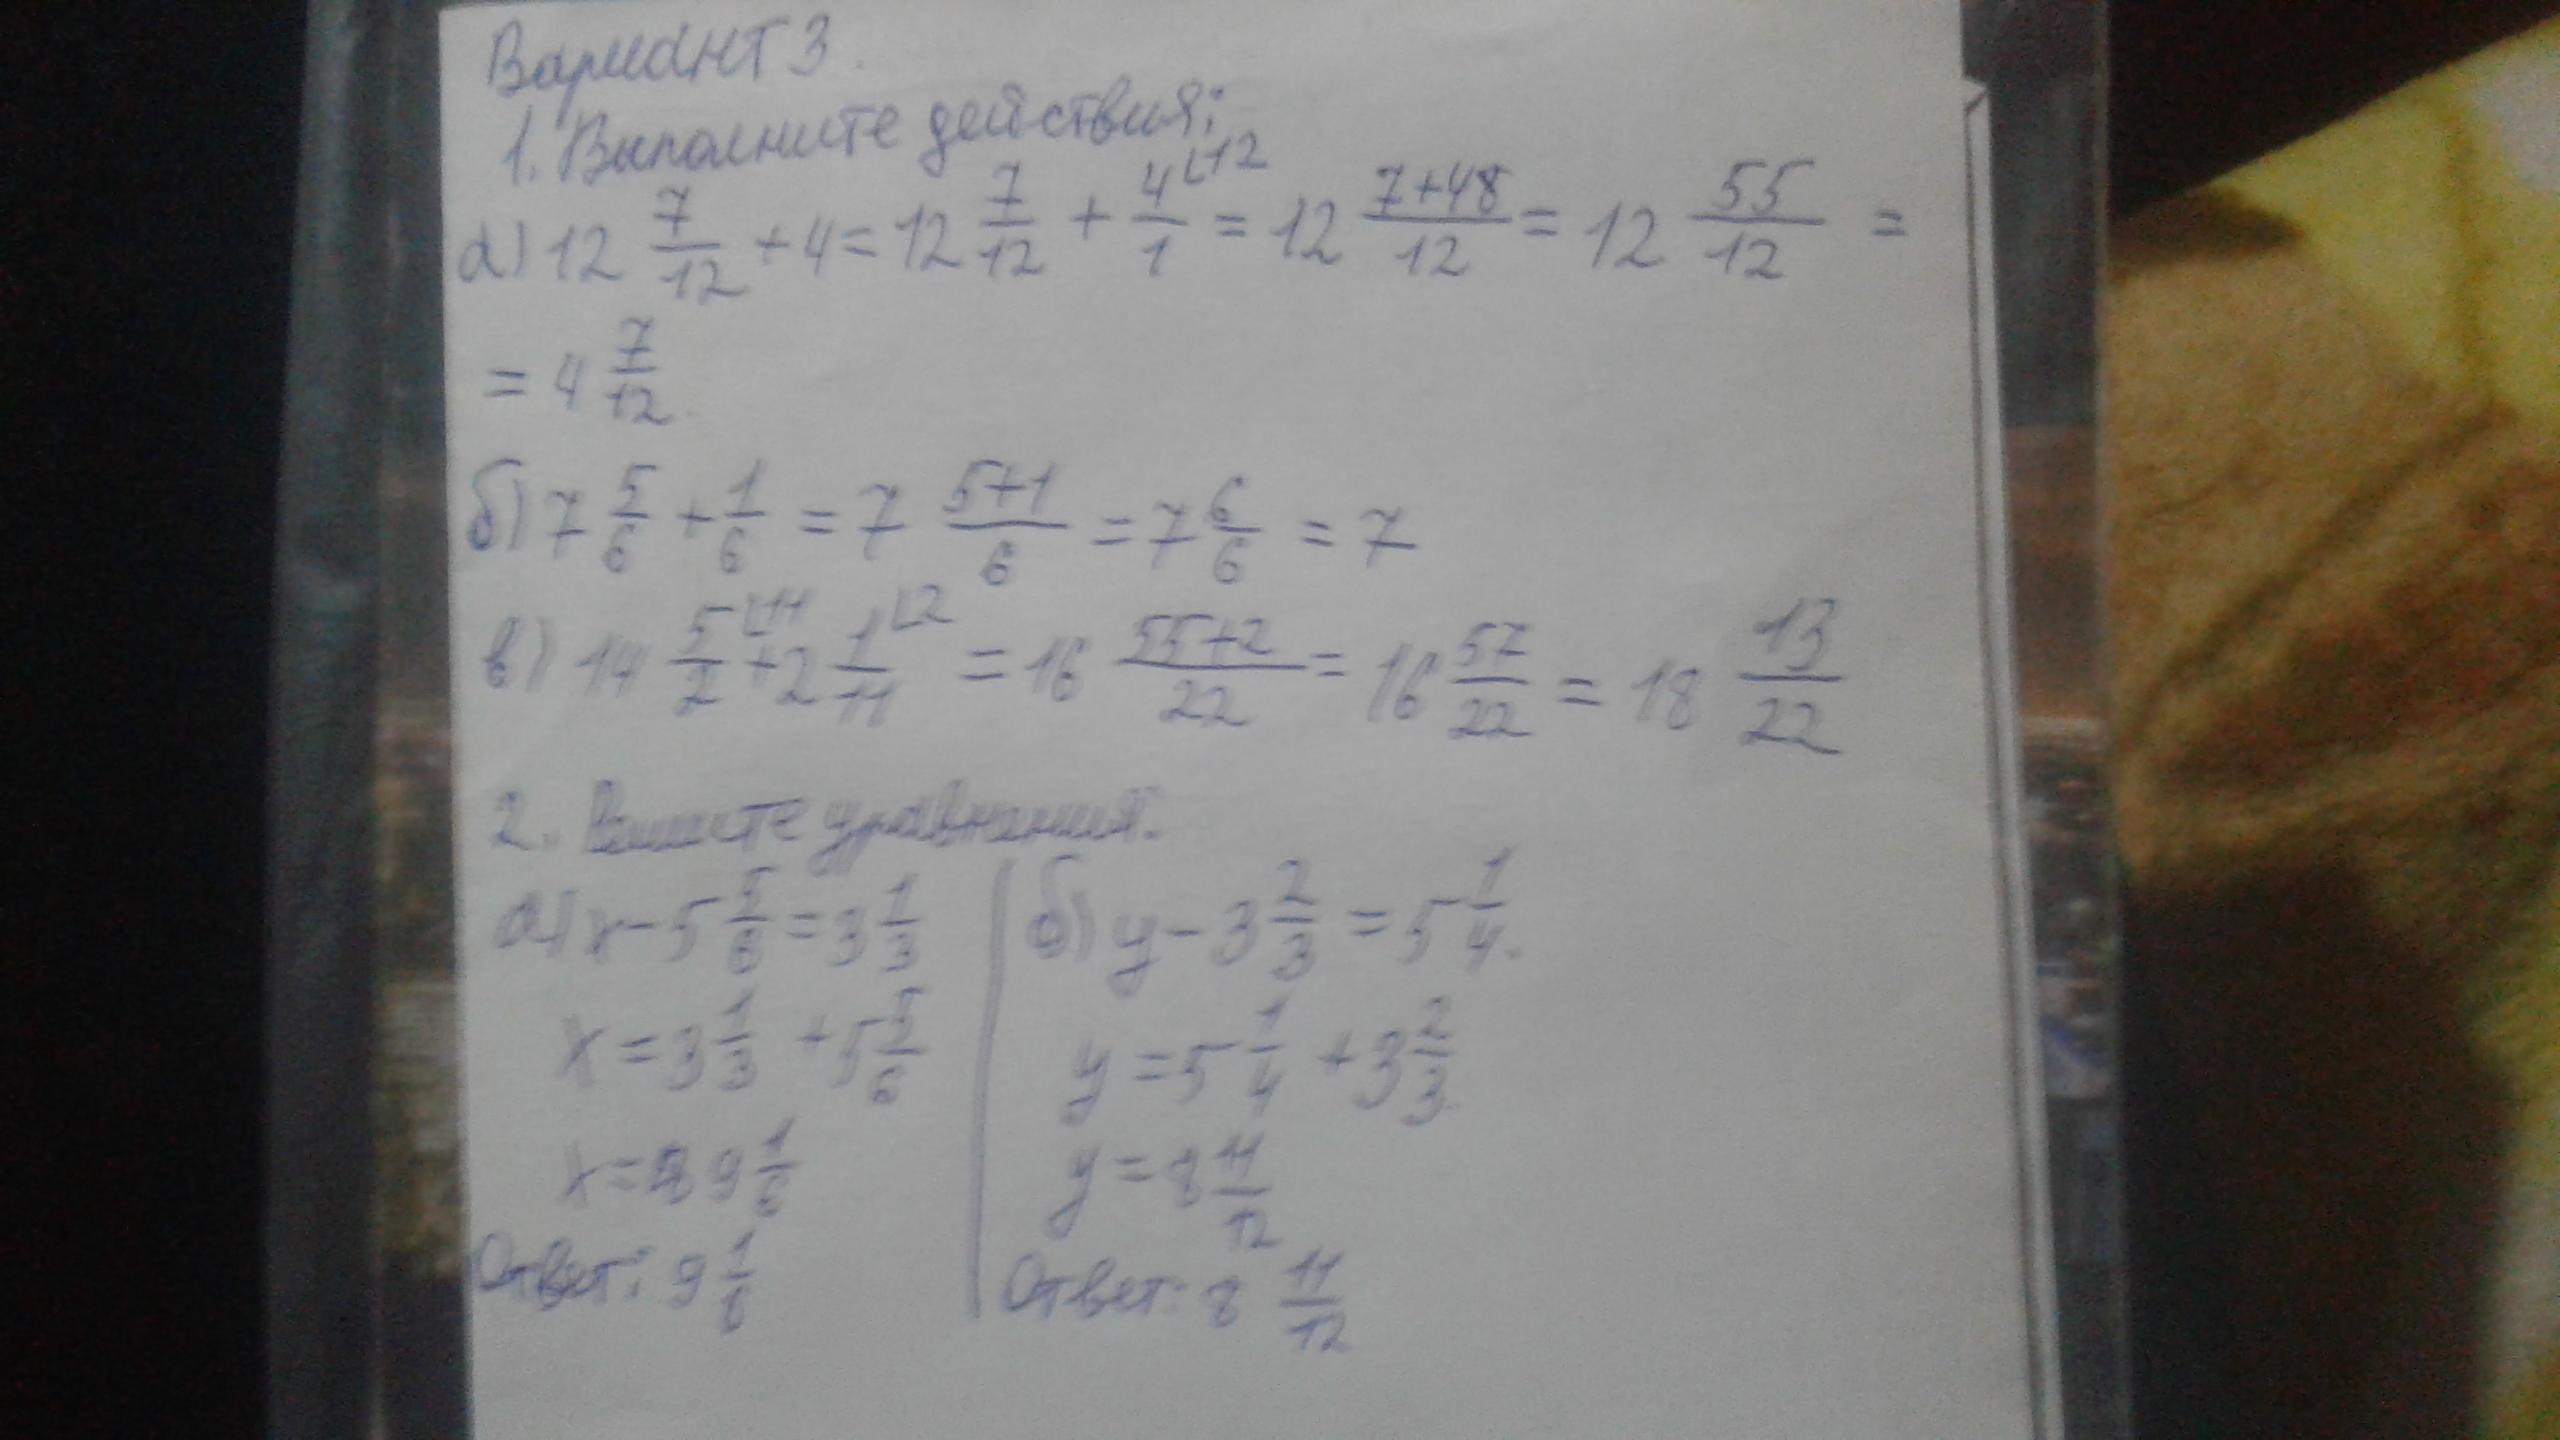 Вариант 3.
1. Выполните действия:
а) 12 7/12 + 4 = 12 7/12 + 4/1 ⌊12 = 12 (7+48)/12 = 12 55/12 =
= 4 7/12.
б) 7 5/6 + 1/6 = 7 (5+1)/6 = 7 6/6 = 7
в) 14 5/2 ⌊11 + 2 1/11 ⌊2 = 16 (55+2)/22 = 16 57/22 = 18 13/22
2. Решите уравнения.
а) x - 5 5/6 = 3 1/3
x = 3 1/3 + 5 5/6
x = 9 1/6
Ответ: 9 1/6
б) y - 3 2/3 = 5 1/4.
y = 5 1/4 + 3 2/3.
y = 8 11/12
Ответ: 8 11/12